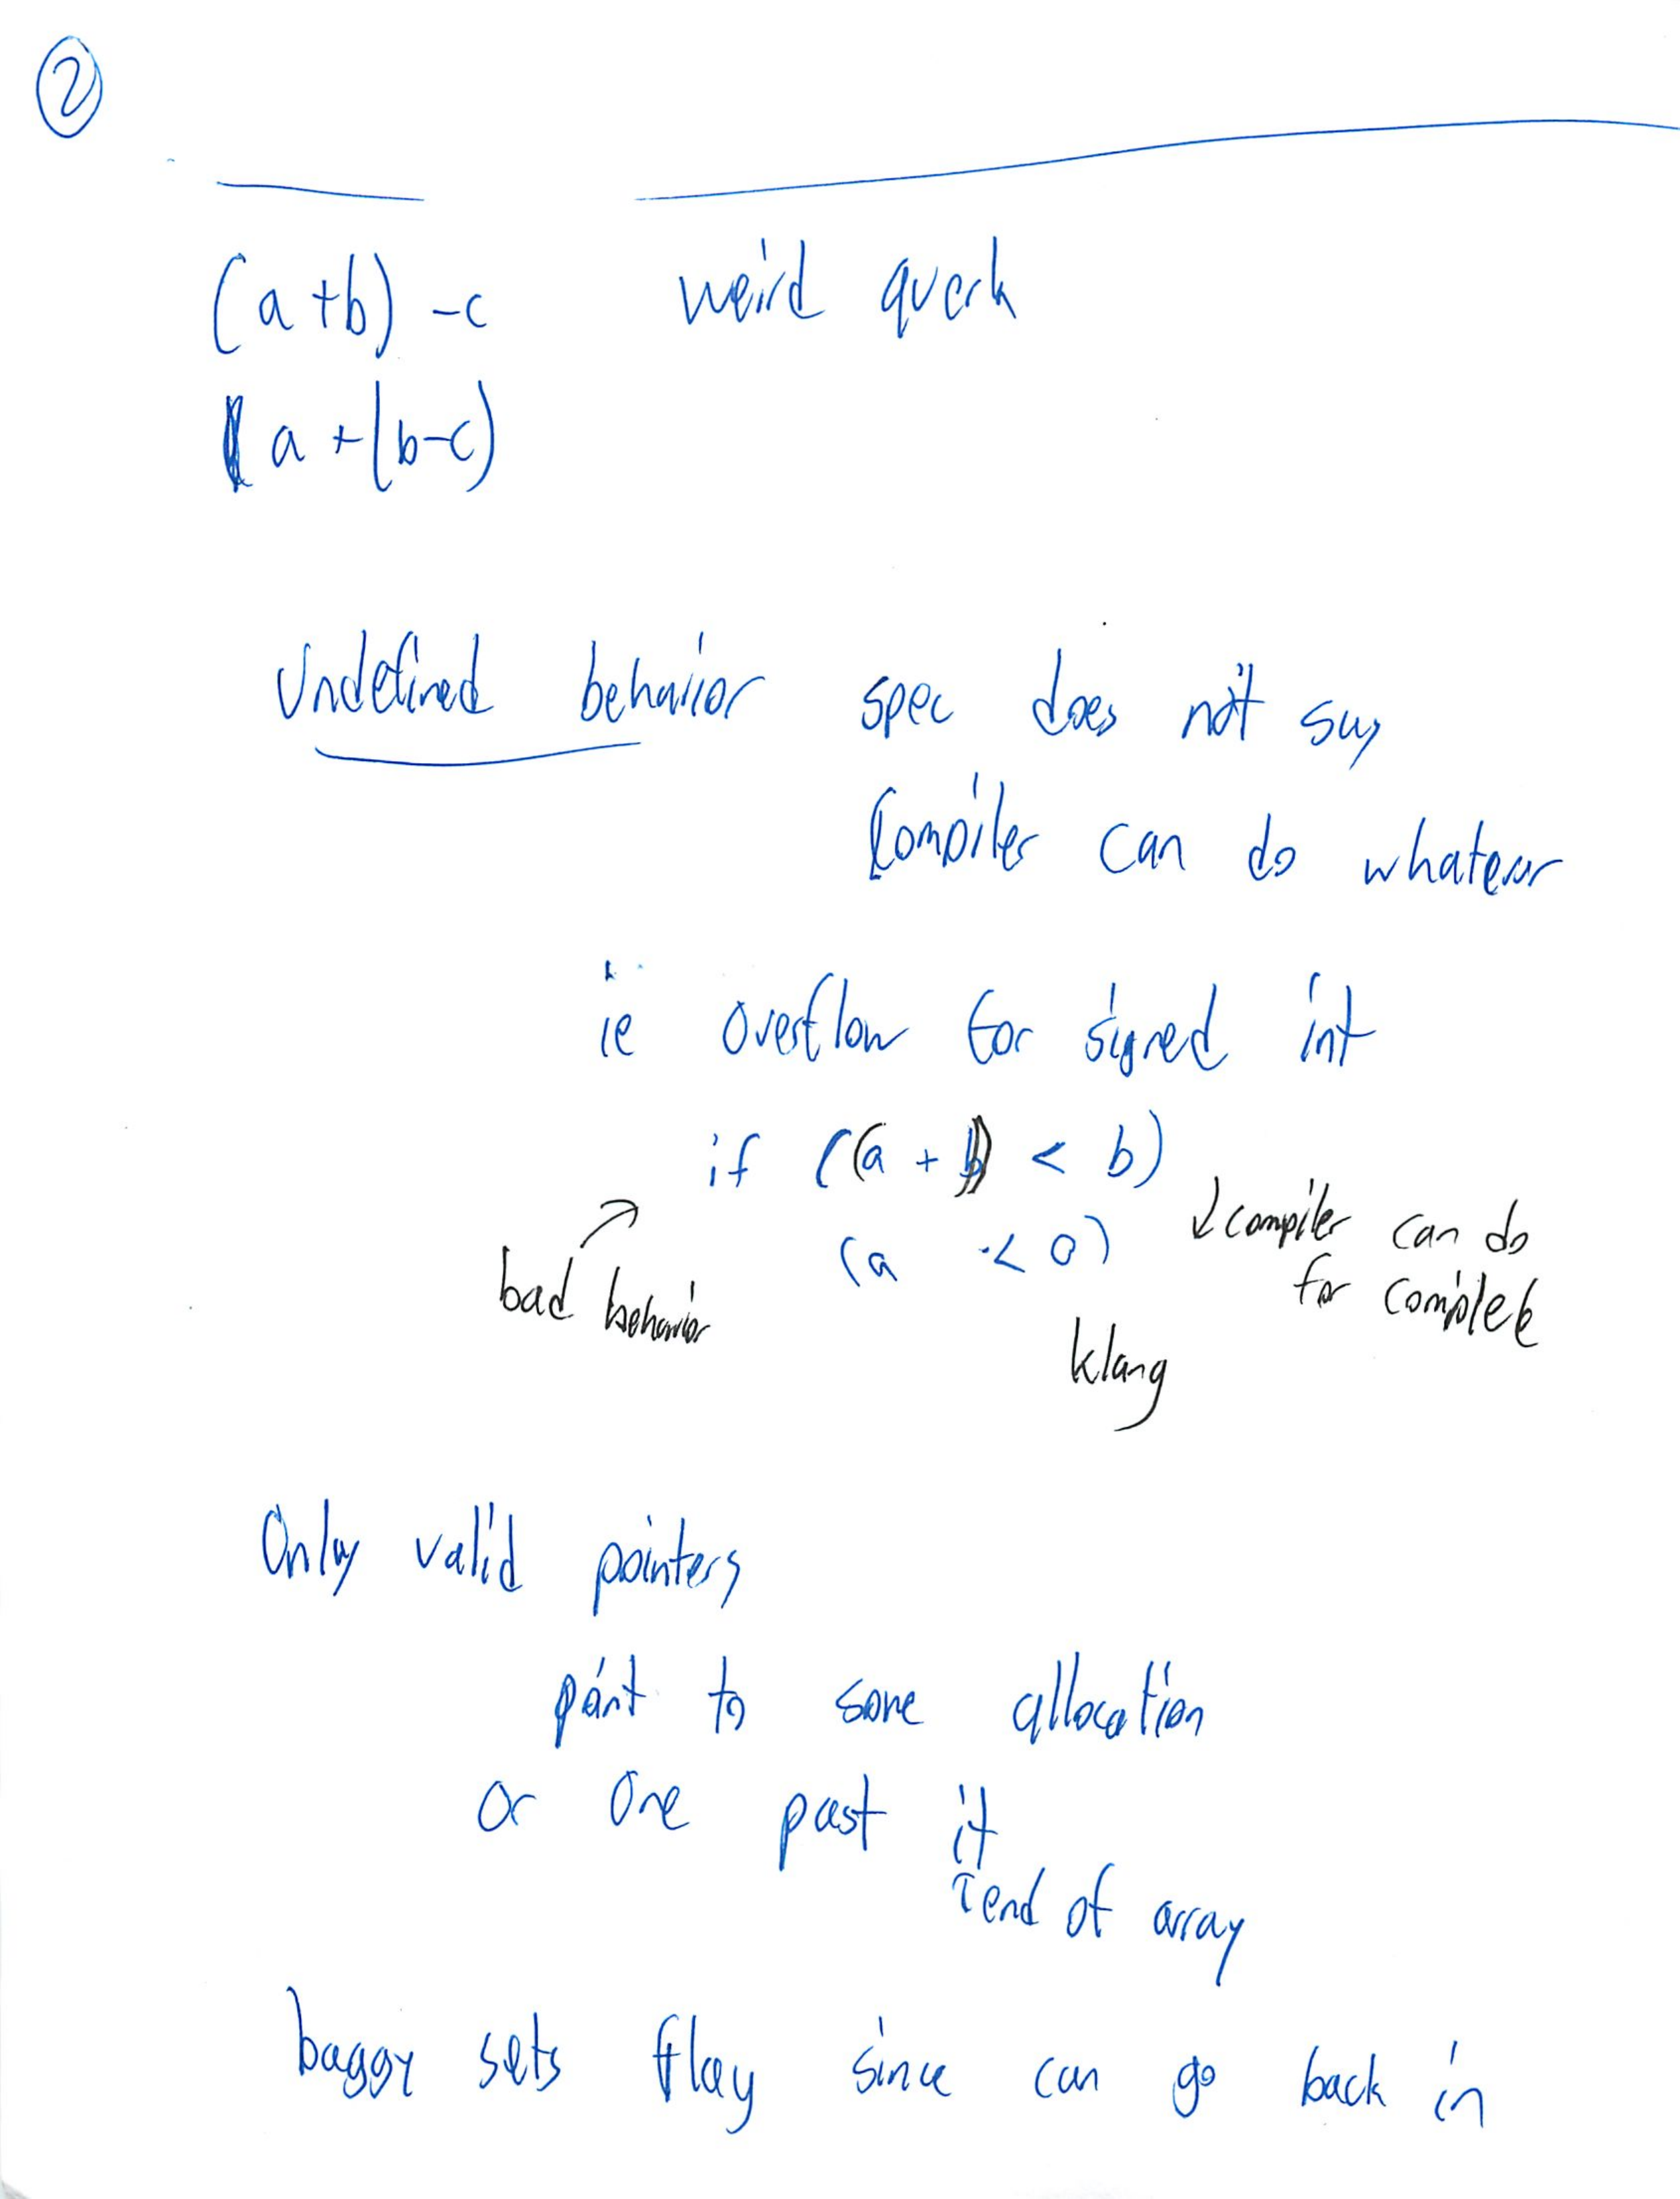 2
(a+b) -c weird querk
(a +(b-c)
Undefined behavior spec does not say
Compiler can do whatever
ie overflow for signed int
if ((a + b) < b)
↓ compiler can do
(a < 0)
for complete
bad behavior
klang
Only valid pointers
point to some allocation
or one past it
↑ end of array
baggy sets flag since can go back in